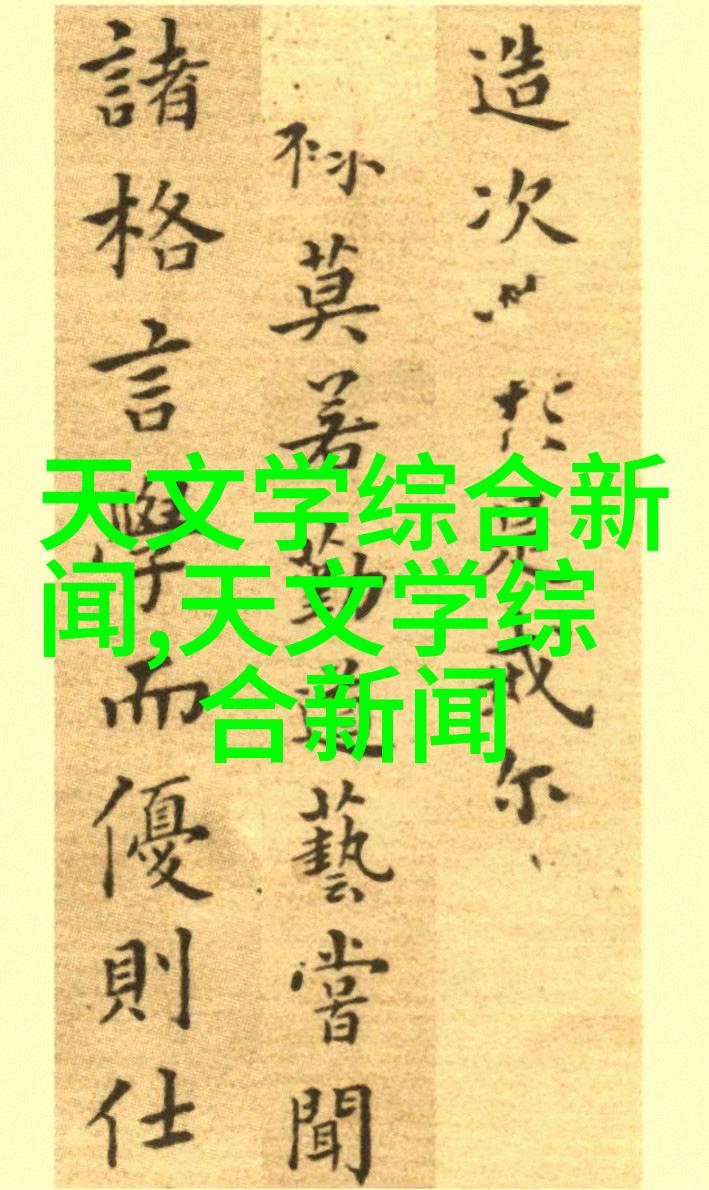 造次於戒尔
莫若勤道藝嘗聞
諸格言學而優則仕
天文学综合新
闻,天文学综
合新闻